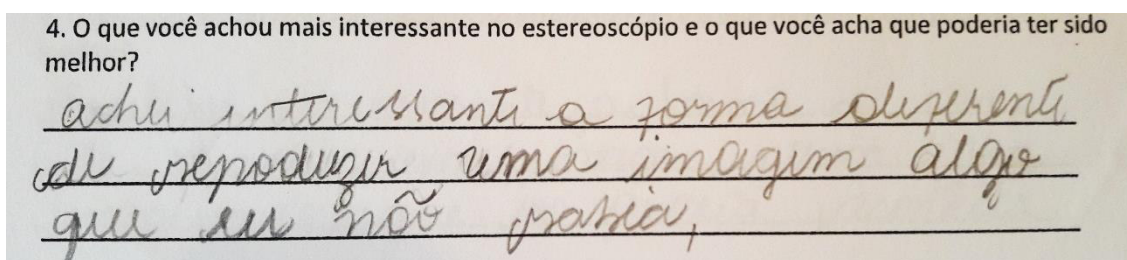 4. O que você achou mais interessante no estereoscópio e o que você acha que poderia ter sido
melhor?
achei interessante a forma diferente
de repoduzir uma imagem algo
que eu não sabia,